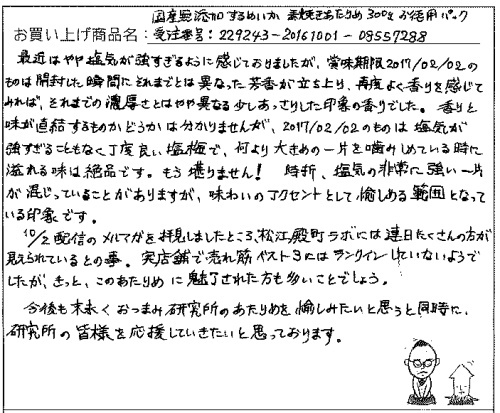 国産無添加 するめいか 素焼きあたりめ 300g お徳用パック
お買い上げ商品名: 受注番号: 229243-20161001-08557288
最近はやや塩気が強すぎるように感じておりましたが、賞味期限2017/02/02の
ものは開封した瞬間にそれまでとは異なった芳香が立ち上り、再度よく香りを感じて
みれば、それまでの濃厚さとはやや異なる少しあっさりした印象の香りでした。香りと
味が直結するものかどうかは分かりませんが、2017/02/02のものは塩気が
強すぎることもなく丁度良い塩梅で、何より大きめの一片を噛みしめている時に
溢れる味は絶品です。もう堪りません! 時折、塩気の非常に強い一片
が混じっていることがありますが、味わいのアクセントとして愉しめる範囲となって
いる印象です。
10/2配信のメルマガを拝見しましたところ、松江殿町ラボには連日たくさんの方が
見えられているとの事。実店舗で売れ筋ベスト3にはランクインしていないようで
したが、きっと、このあたりめに魅了された方も多いことでしょう。
今後も末永くおつまみ研究所のあたりめを愉しみたいと思うと同時に、
研究所の皆様を応援していきたいと思っております。